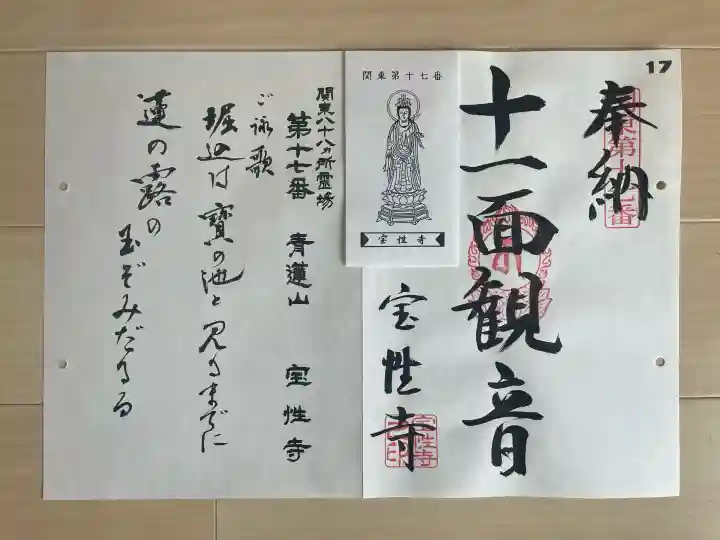 17
奉納
関東第十七番
十一面観音
宝性寺
宝性寺
関東第十七番
宝性寺
関東八十八ヵ所霊場
第十七番 青蓮山 宝性寺
ご詠歌
堀込は寶の池と見るまでに
蓮の露の玉ぞみだるる